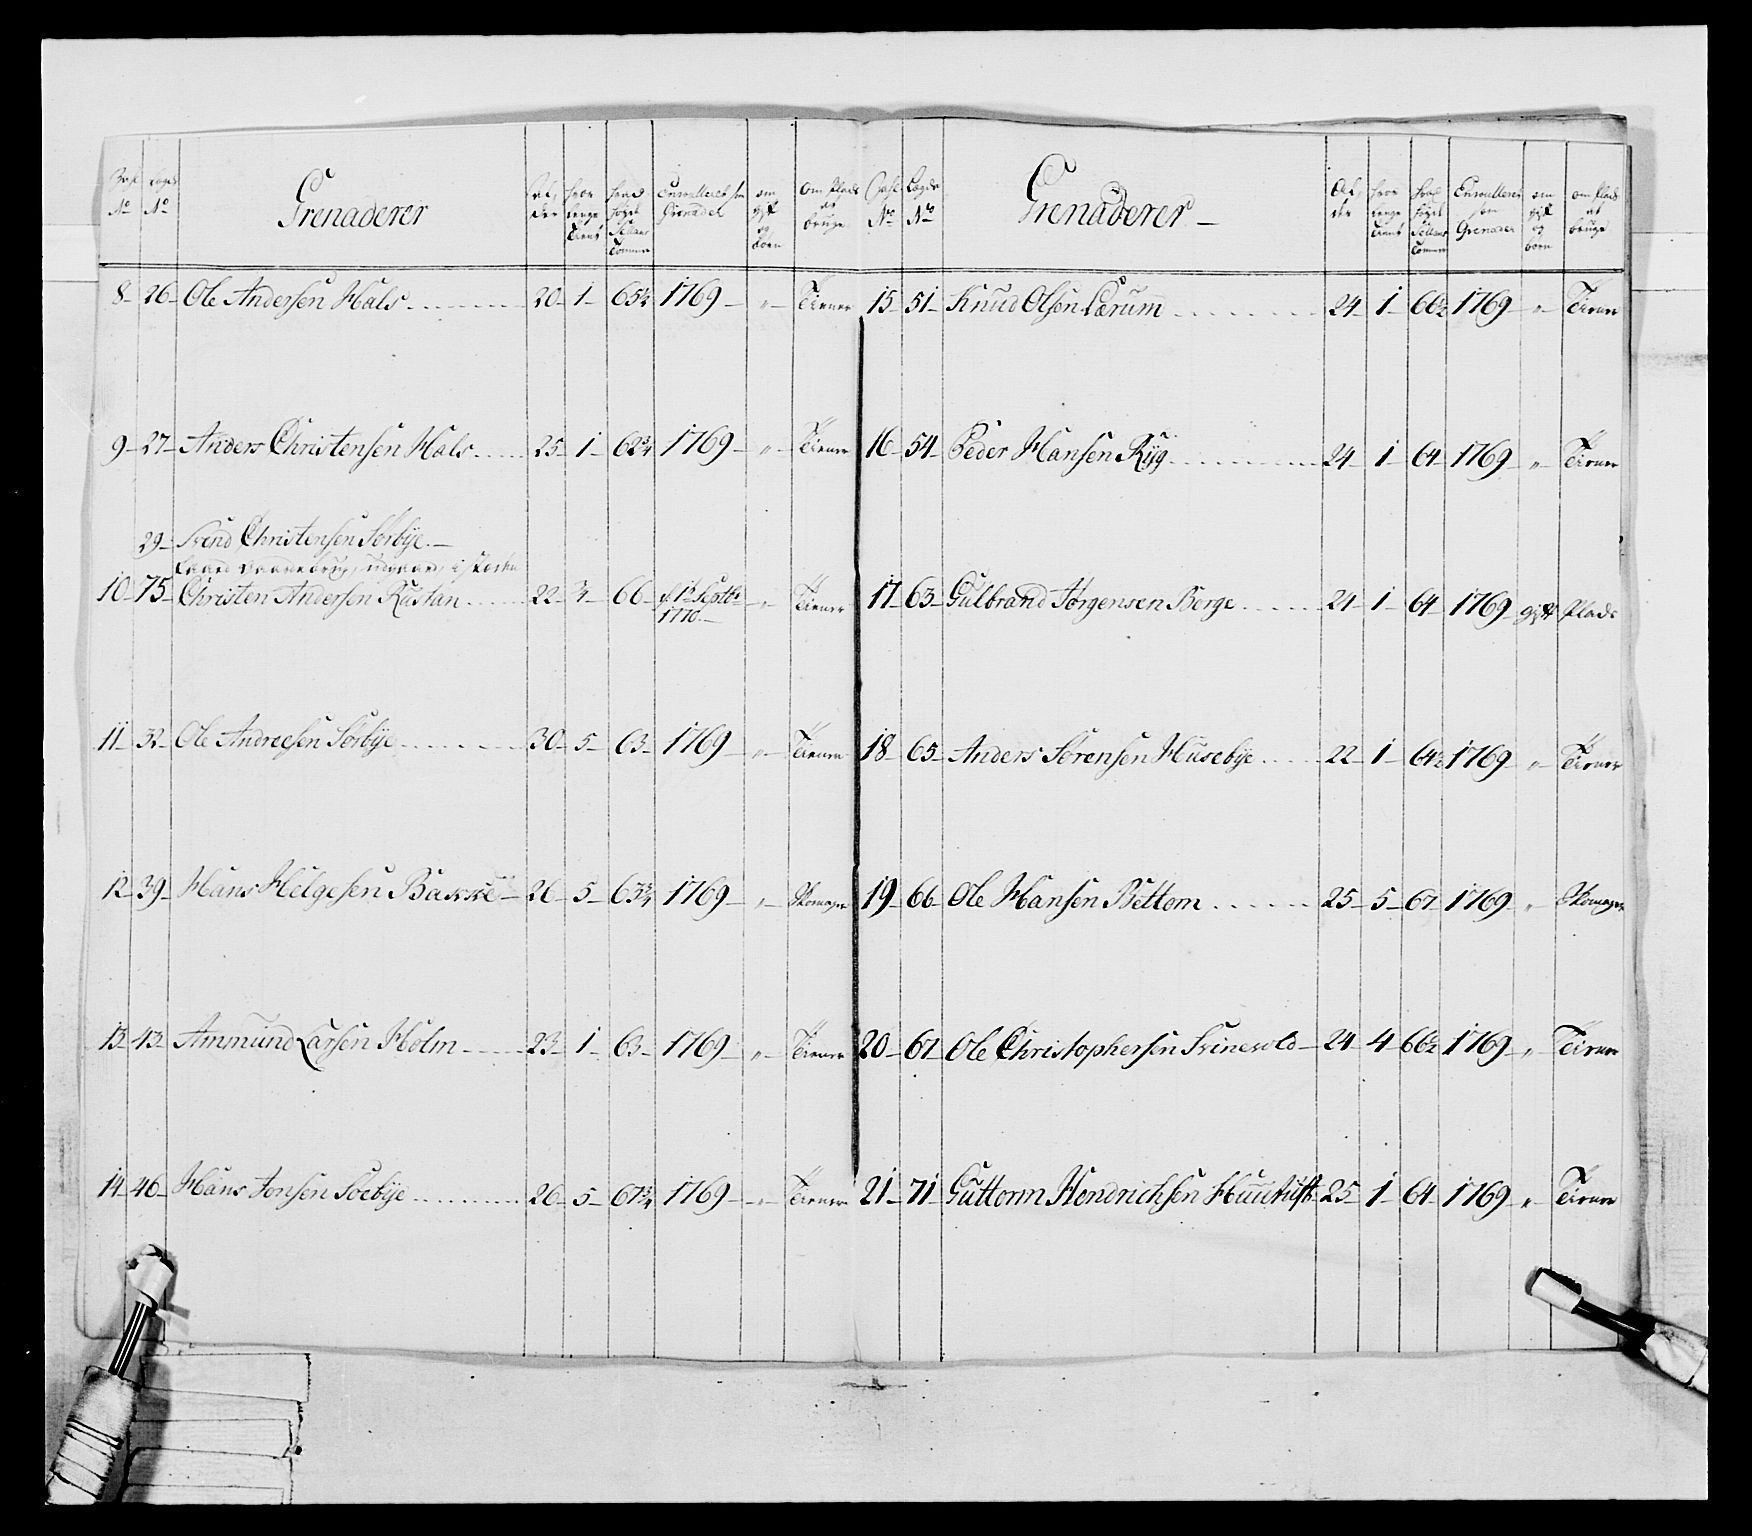 No No Grenaderer Al, der hvor lenge tient hvad høyde Sællans Tommer Enroulleret som Grenader om gift og børn om Plads at bruge
8 26 Ole Andersen Hals 20 1 65¼ 1769 " Tiener
9 27 Anders Christensen Hals 25 1 62¾ 1769 " Tiener
29 Svend Christensen Sørbye
10 75 Christen Andersen Rustan 22 ¾ 66 d 1te Septbr 1770 " Tiener
11 32 Ole Andreesen Sørbye 30 5 63 1769 " Tiener
12 39 Hans Helgesen Bakke 26 5 63¾ 1769 " Skomager
13 43 Ammund Larsen Holm 23 1 63 1769 " Tiener
14 46 Hans Jonsen Soebye 26 5 67¾ 1769 " Tiener
No Lægds No Grenaderer Al, der hvor lenge tient hvad høyde Sællans Tommer Enroulleret som Grenader om gift og børn om Plads at bruge
15 51 Knud Olsen Lærum 24 1 66½ 1769 " Tiener
16 54 Peder Hansen Ryg 24 1 64 1769 " Tiener
17 63 Gulbrand Jørgensen Berge 24 1 64 1769 gift Plads
18 65 Anders Sørensen Husebye 22 1 64½ 1769 " Tiener
19 66 Ole Hansen Bettom 25 5 67 1769 " Skomager
20 67 Ole Christophersen Svinevold 24 4 66½ 1769 " Tiener
21 71 Guttorm Hendrichsen 25 1 64 1769 " Tiener